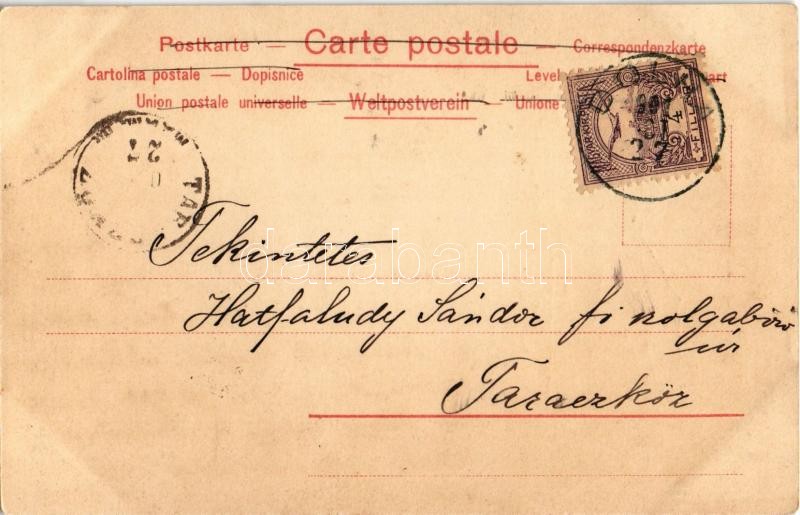 Postkarte — Carte postale — Correspondenzkarte
Cartolina postale — Dopisnice Level
Union postale universelle — Weltpostverein — Unione
4
FILLÉR
TAR
Tekintetes
darabanth
Hatfaludy Sándor fi nolgabiró
úr
Taraczköz